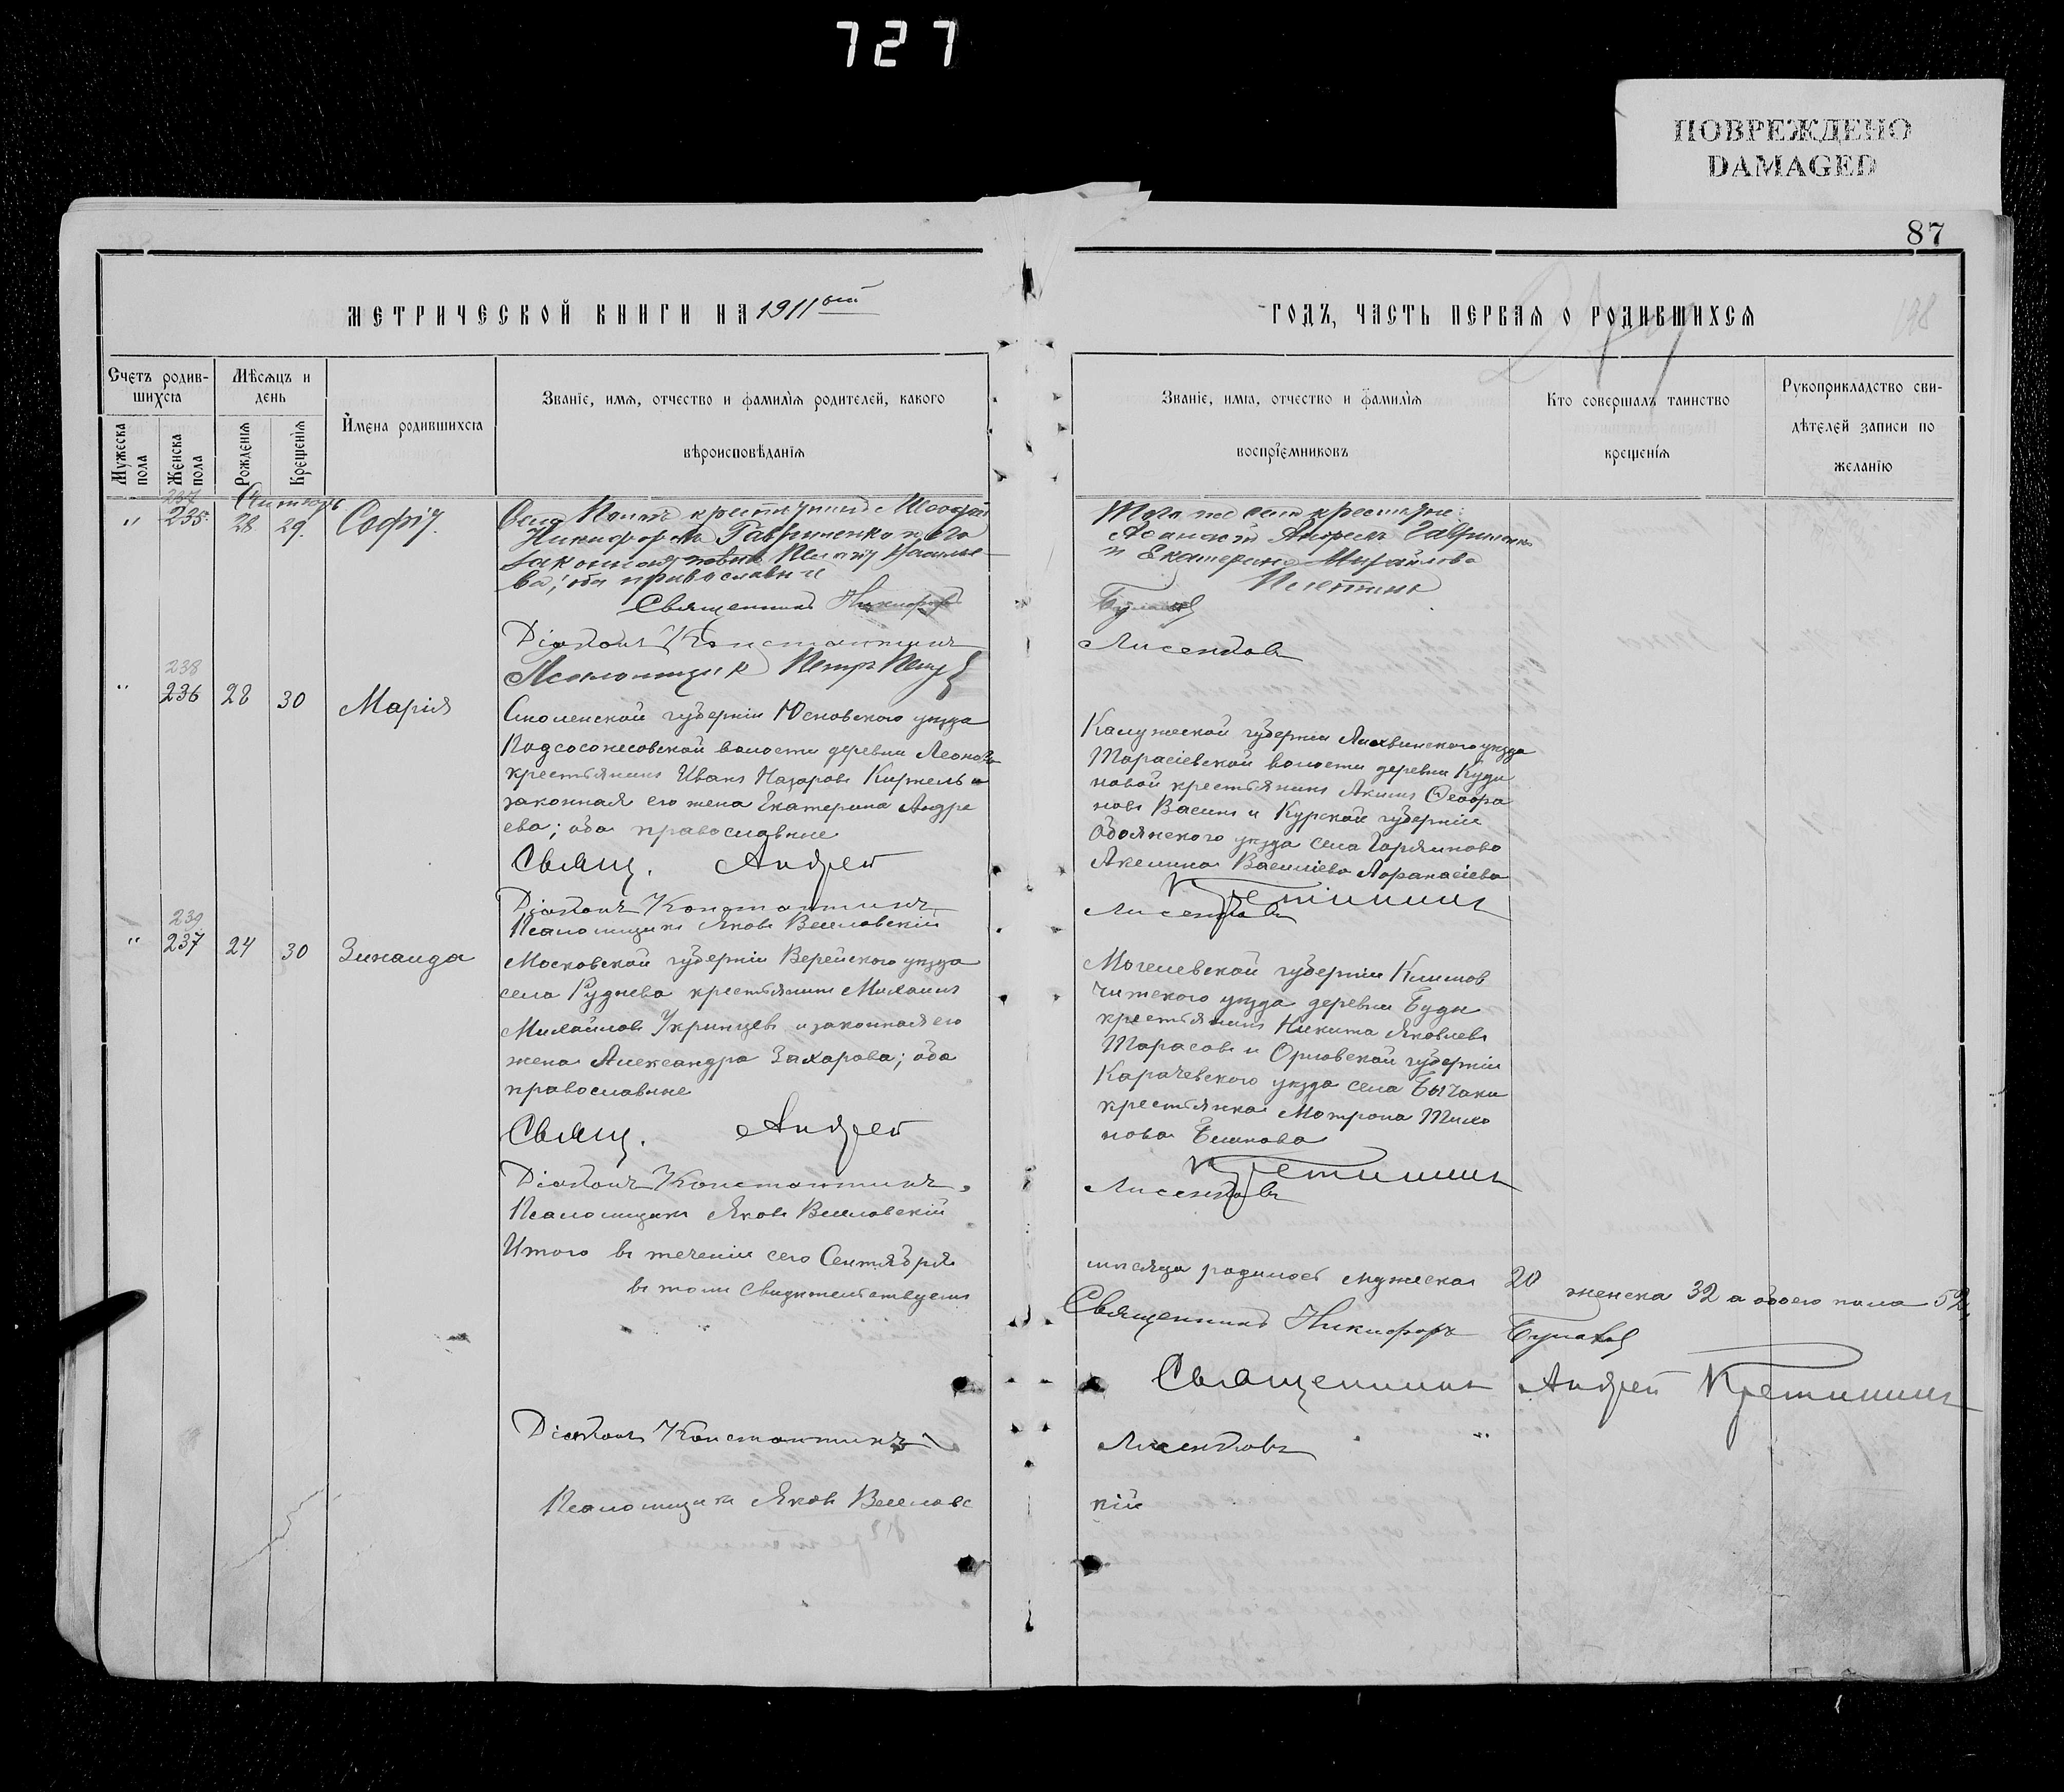 727
ПОВРЕЖДЕНО
DAMAGED
87
198
МЕТРИЧЕСКОЙ КНИГИ НА 1911ый
ГОДЪ, ЧАСТЬ ПЕРВАЯ О РОДИВШИХСЯ
Счетъ родив-
шихся
Мѣсяцъ и
день
Имена родившихся
Званіе, имя, отчество и фамилія родителей, какого
вѣроисповѣданія
Мужеска
пола
Женска
пола
Рожденія
Крещенія
Званіе, имя, отчество и фамилія
воспріемниковъ
Кто совершалъ таинство
крещенія
Рукоприкладство сви-
дѣтелей записи по
желанію
237
" 235. 28 29. Софія.
Села крестьянинъ
Никифоровъ Гавриленко и его
законная Василье
ва; оба православные
Священникъ Никифоръ
Діаконъ Константинъ
Псаломщикъ Петръ
Того же села крестьяне:
Гавриленко
и Екатерина Михайлова
Булаковъ
Лисенковъ
238
" 236 28 30 Марія
Смоленской губерніи Юхновскаго уѣзда
Подсосонсовской волости деревни Леоново
крестьянинъ Иванъ Назаровъ и
законная его жена Екатерина Андре
ева; оба православные
Свящ. Андрей
Діаконъ Константинъ
Псаломщикъ Яковъ Веселовскій
Калужской губерніи Лихвинскаго уѣзда
Тарасіевской волости деревни Куди
новой крестьянинъ Акимъ
новъ Васинъ и Курской губерніи
Обоянского уѣзда села
Акелина Василіева Афанасіева
Кретининъ
Лисенковъ
239
" 237 24 30 Зинаида
Московской губерніи Верейского уѣзда
села Руднева крестьянинъ Михаилъ
Михайловъ Украинцевъ и законная его
жена Александра Захарова; оба
православные
Свящ. Андрей
Діаконъ Константинъ
Псаломщикъ Яковъ Веселовскій
Могелевской губерніи Климов
чижского уѣзда деревни Буды
крестьянинъ Никита Яковлевъ
Тарасовъ и Орловской губерніи
Карачевского уѣзда села Бытаки
крестьянка Мотрона Тихо
нова
Кретининъ
Лисенковъ
Итого въ теченіи сего Сентября
мѣсяца родилось мужеска 20 женска 32 а обоего пола 52,
въ томъ свидѣтельствуемъ
Священникъ Никифоръ Булаковъ
Священникъ Андрей Кретининъ
Діаконъ Константинъ Лисенковъ
Псаломщикъ Яковъ Веселовс
кій